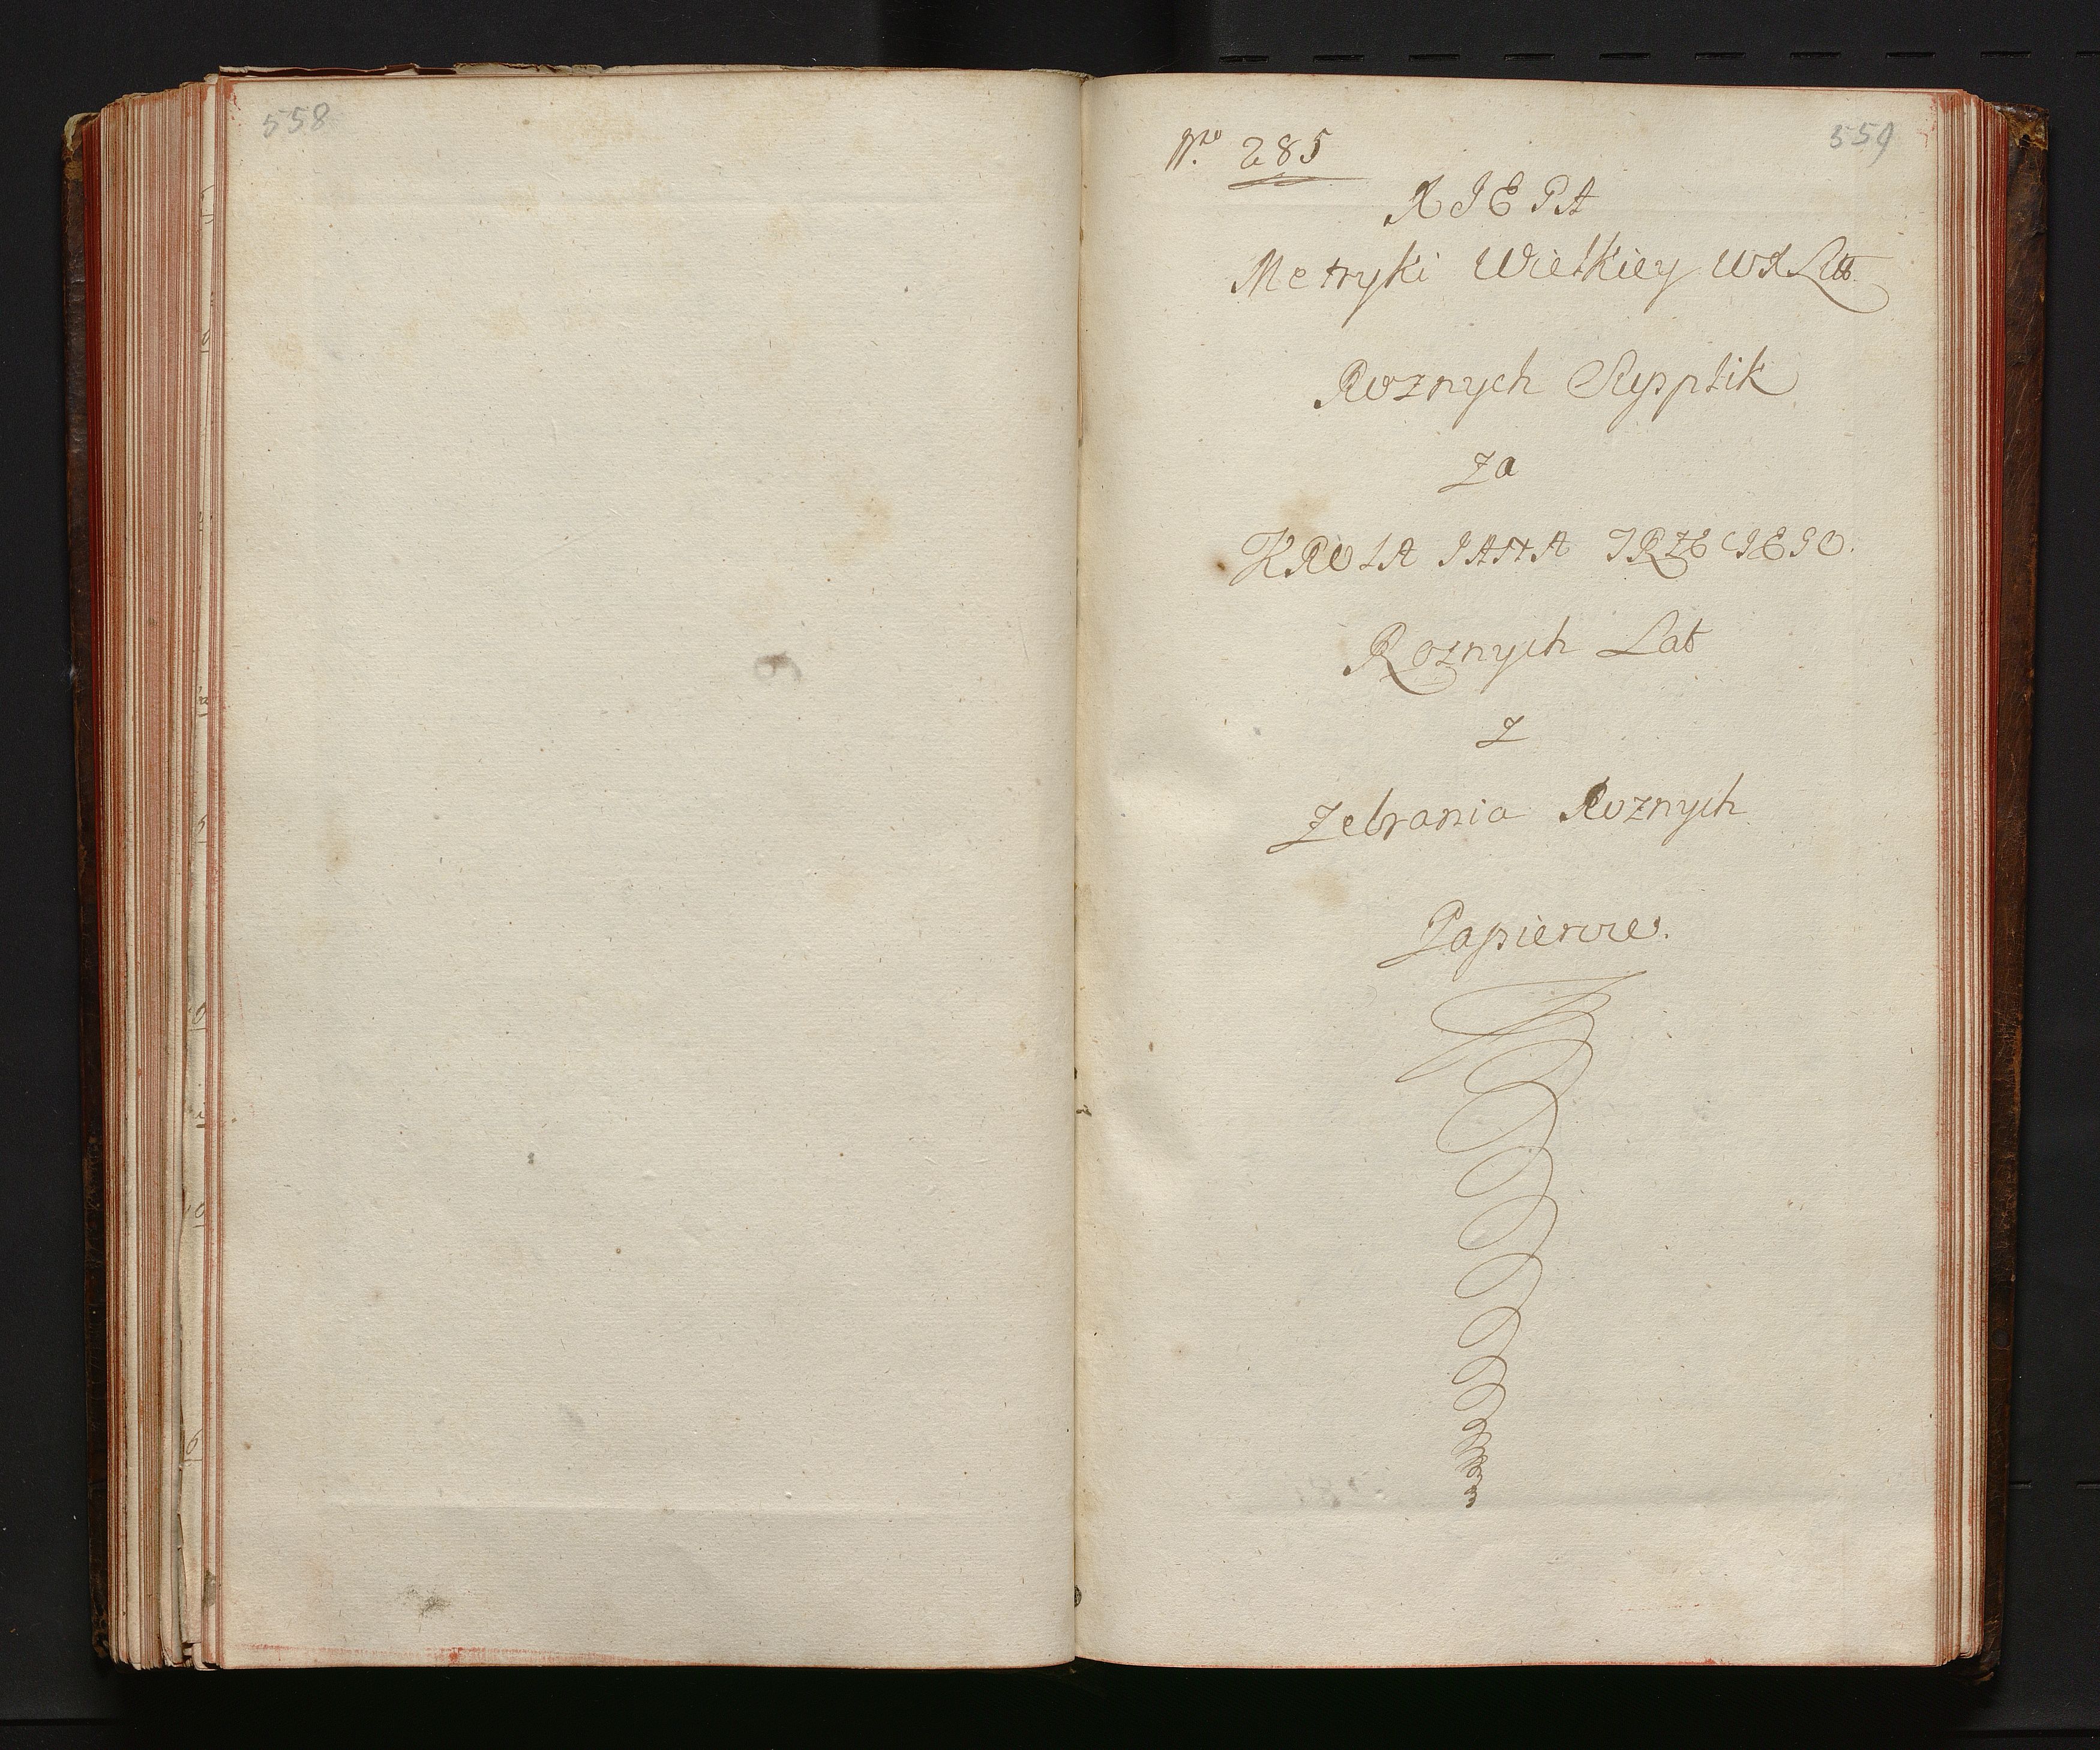 558
559
Nro 285
XIĘGA
Metryki Wielkiey WXLitt.
Roznych Supplik
za
KROLA IANA TRZECIEGO.
Roznych Lat
z
Zebrania Roznych
Papierow.